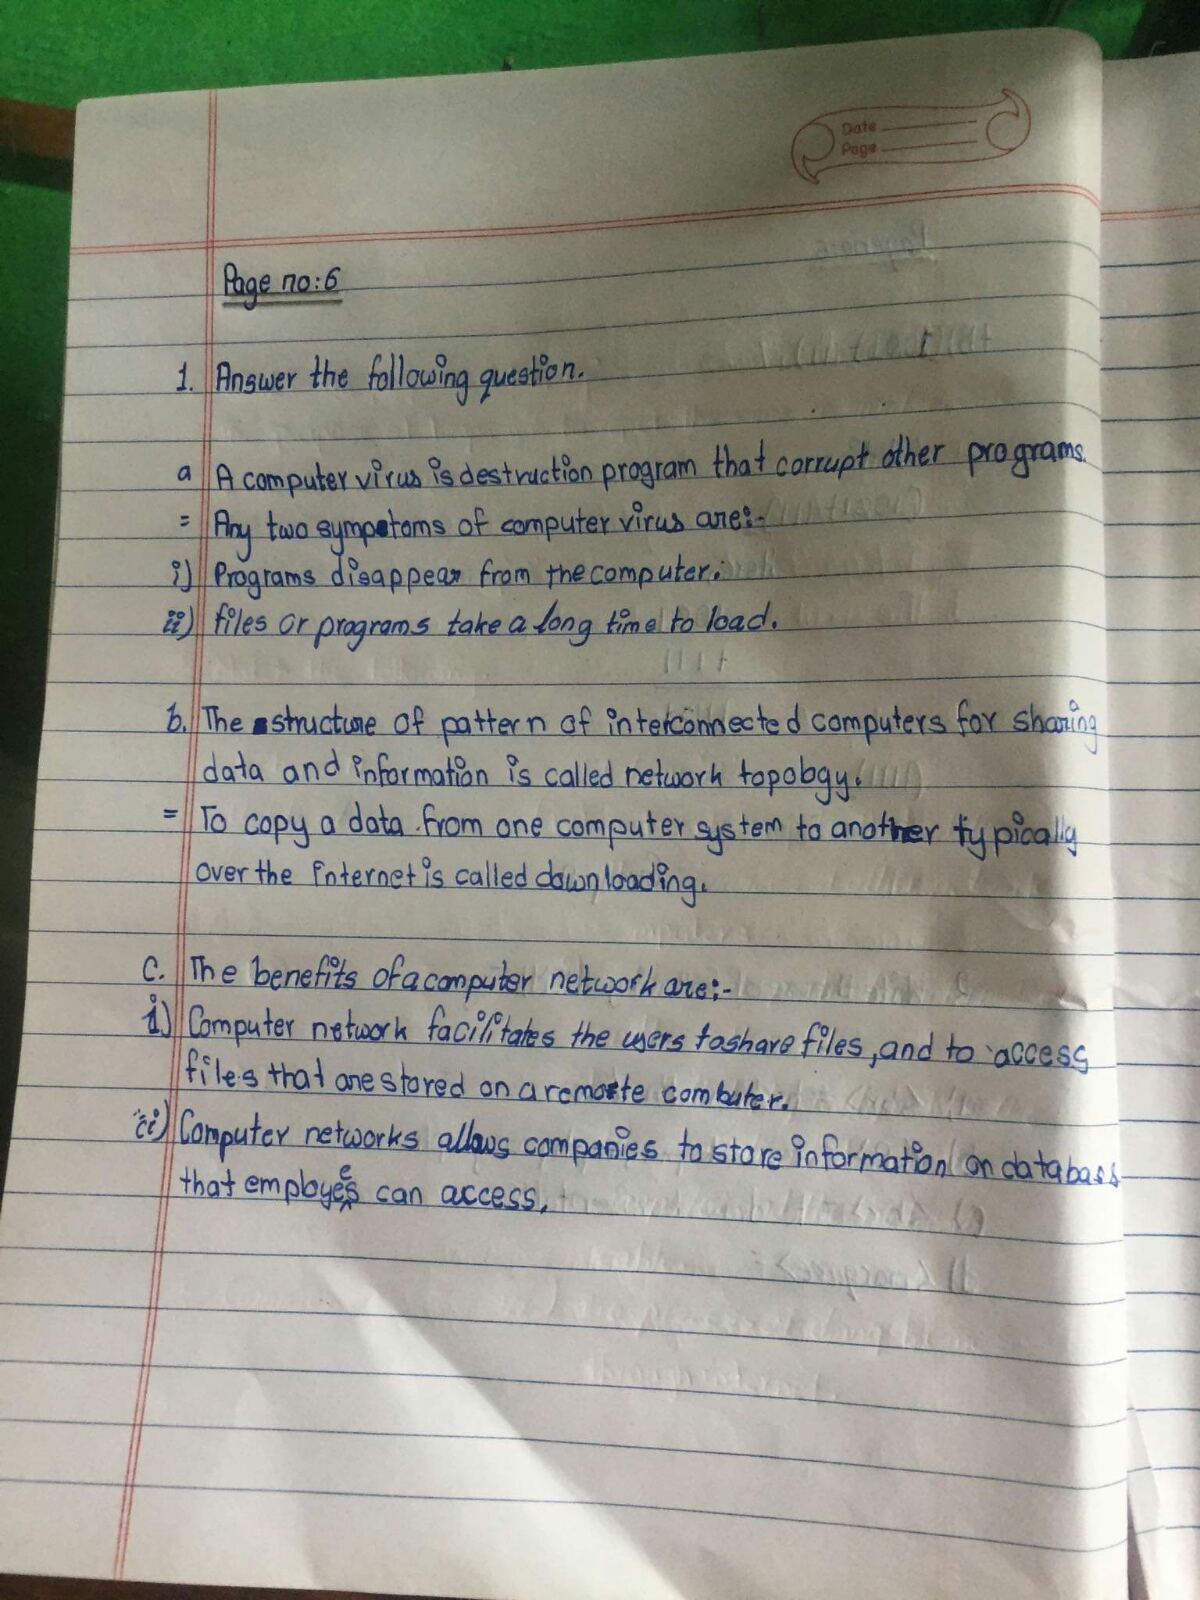 Date
Page
Page no:6
1. Answer the following question.
a A computer virus is destruction program that corrupt other programs.
= Any two sympotoms of computer virus are:-
i) Programs disappear from the computer.
ii) files or programs take a long time to load.
b. The structure of pattern of interconnected computers for sharing
data and information is called network topology.
= To copy a data from one computer system to another typically
over the internet is called downloading.
C. The benefits of a computer network are:-
i) Computer network facilitates the users to share files, and to access
files that are stored on a remote computer.
ii) Computer networks allows companies to store information on databass
that employees can access.